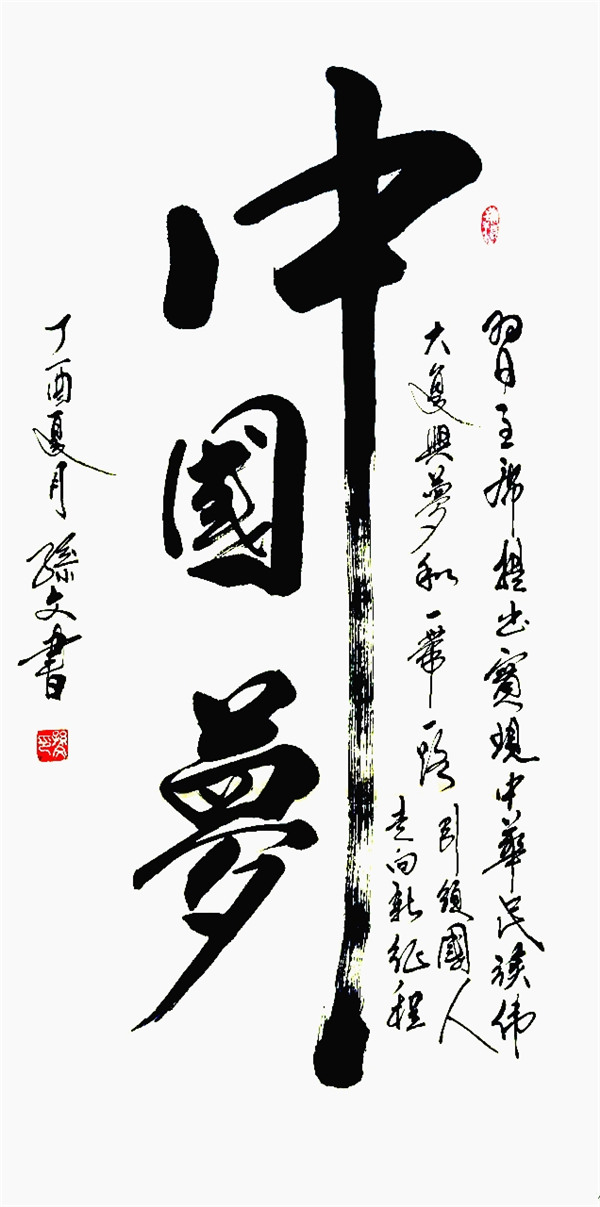 中國夢
習主席提出實現中華民族伟
大复興夢和一帶一路引領國人
走向新征程
丁酉夏月孫文書